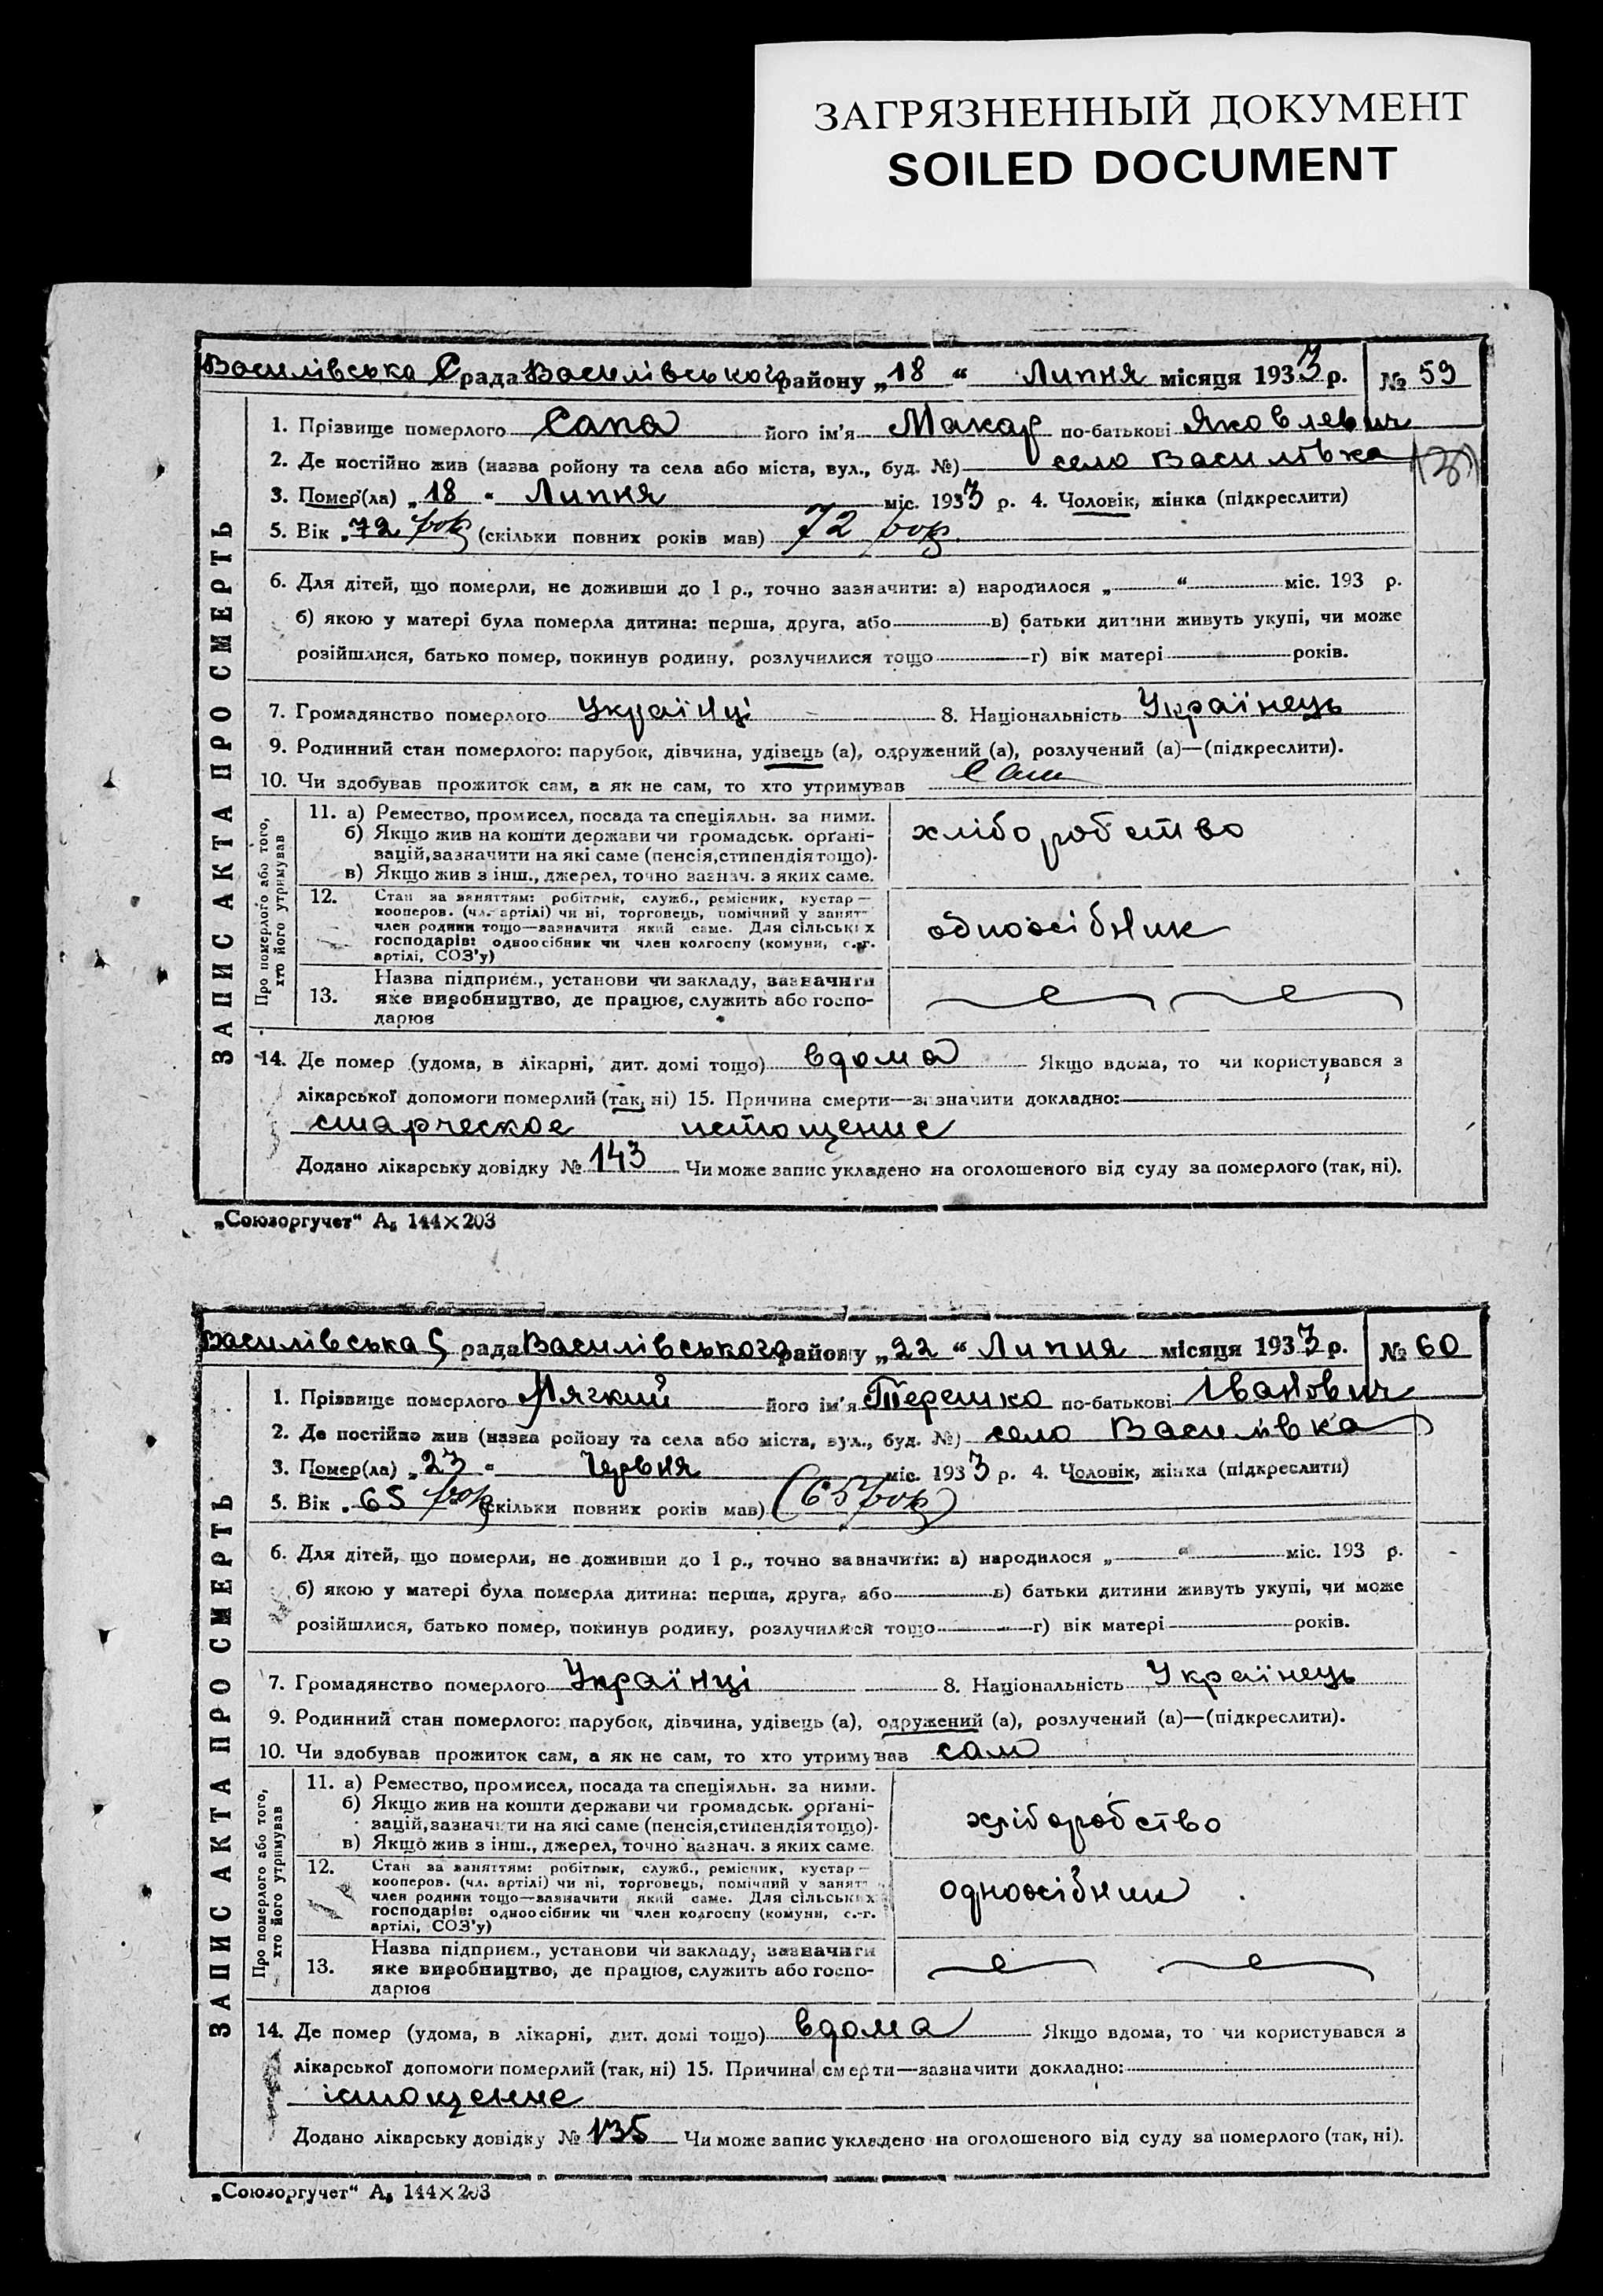 ЗАГРЯЗНЕННЫЙ ДОКУМЕНТ
SOILED DOCUMENT
Василівська С рада Василівського району „18“ Липня місяця 1933 р. № 59
ЗАПИС АКТА ПРО СМЕРТЬ
1. Прізвище померлого Сапа його ім'я Макар по-батькові Яковлевич
2. Де постійно жив (назва ройону та села або міста, вул., буд. №) село Василівка
3. Помер(ла) „18“ Липня міс. 1933 р. 4. Чоловік, жінка (підкреслити)
5. Вік „72 рок (скільки повних років мав) 72 рок
6. Для дітей, що померли, не доживши до 1 р., точно зазначити: а) народилося „ “ міс. 193 р.
б) якою у матері була померла дитина: перша, друга, або в) батьки дитини живуть укупі, чи може
розійшлися, батько помер, покинув родину, розлучилися тощо г) вік матері років.
7. Громадянство померлого Україйці 8. Національність Українець
9. Родинний стан померлого: парубок, дівчина, удівець (а), одружений (а), розлучений (а)—(підкреслити).
10. Чи здобував прожиток сам, а як не сам, то хто утримував Сам
Про померлого або того, хто його утримував
11. а) Ремество, промисел, посада та спеціяльн. за ними.
б) Якщо жив на кошти держави чи громадськ. органі-
зацій, зазначити на які саме (пенсія, стипендія тощо).
в) Якщо жив з інш., джерел, точно зазнач. з яких саме.
хліборобство
12. Стан за заняттям: робітник, служб., ремісник, кустар—
кооперов. (чл. артілі) чи ні, торговець, помічний у занят-
член родини тощо—зазначити який саме. Для сільських
господарів: одноосібник чи член колгоспу (комуни, с.-г.
артілі, СОЗ'у)
одноосібник
13. Назва підприєм., установи чи закладу, зазначити
яке виробництво, де працює, служить або госпо-
дарює
14. Де помер (удома, в лікарні, дит. домі тощо) вдома Якщо вдома, то чи користувався з
лікарської допомоги померлий (так, ні) 15. Причина смерти—зазначити докладно:
старческое истощение
Додано лікарську довідку № 143 Чи може запис укладено на оголошеного від суду за померлого (так, ні).
„Союзоргучет“ А₅ 144×203
Василівська С рада Василівського району „22“ Липня місяця 1933 р. № 60
ЗАПИС АКТА ПРО СМЕРТЬ
1. Прізвище померлого Мягкий його ім'я Терешко по-батькові Іванович
2. Де постійно жив (назва ройону та села або міста, вул., буд. №) село Василівка
3. Помер(ла) „23“ Червня міс. 1933 р. 4. Чоловік, жінка (підкреслити)
5. Вік „65 рок (скільки повних років мав) (65 рок)
6. Для дітей, що померли, не доживши до 1 р., точно зазначити: а) народилося „ “ міс. 193 р.
б) якою у матері була померла дитина: перша, друга, або в) батьки дитини живуть укупі, чи може
розійшлися, батько помер, покинув родину, розлучилися тощо г) вік матері років.
7. Громадянство померлого Українці 8. Національність Українець
9. Родинний стан померлого: парубок, дівчина, удівець (а), одружений (а), розлучений (а)—(підкреслити).
10. Чи здобував прожиток сам, а як не сам, то хто утримував сам
Про померлого або того, хто його утримував
11. а) Ремество, промисел, посада та спеціяльн. за ними.
б) Якщо жив на кошти держави чи громадськ. органі-
зацій, зазначити на які саме (пенсія, стипендія тощо).
в) Якщо жив з інш., джерел, точно зазнач. з яких саме.
хліборобство
12. Стан за заняттям: робітник, служб., ремісник, кустар—
кооперов. (чл. артілі) чи ні, торговець, помічний у занят-
член родини тощо—зазначити який саме. Для сільських
господарів: одноосібник чи член колгоспу (комуни, с.-г.
артілі, СОЗ'у)
одноосібник
13. Назва підприєм., установи чи закладу, зазначити
яке виробництво, де працює, служить або госпо-
дарює
14. Де помер (удома, в лікарні, дит. домі тощо) вдома Якщо вдома, то чи користувався з
лікарської допомоги померлий (так, ні) 15. Причина смерти—зазначити докладно:
істощение
Додано лікарську довідку № 135 Чи може запис укладено на оголошеного від суду за померлого (так, ні).
„Союзоргучет“ А₅ 144×203